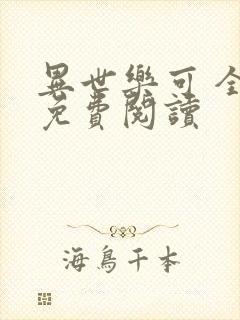 異世樂可 全
免費閱讀
海鳥千本